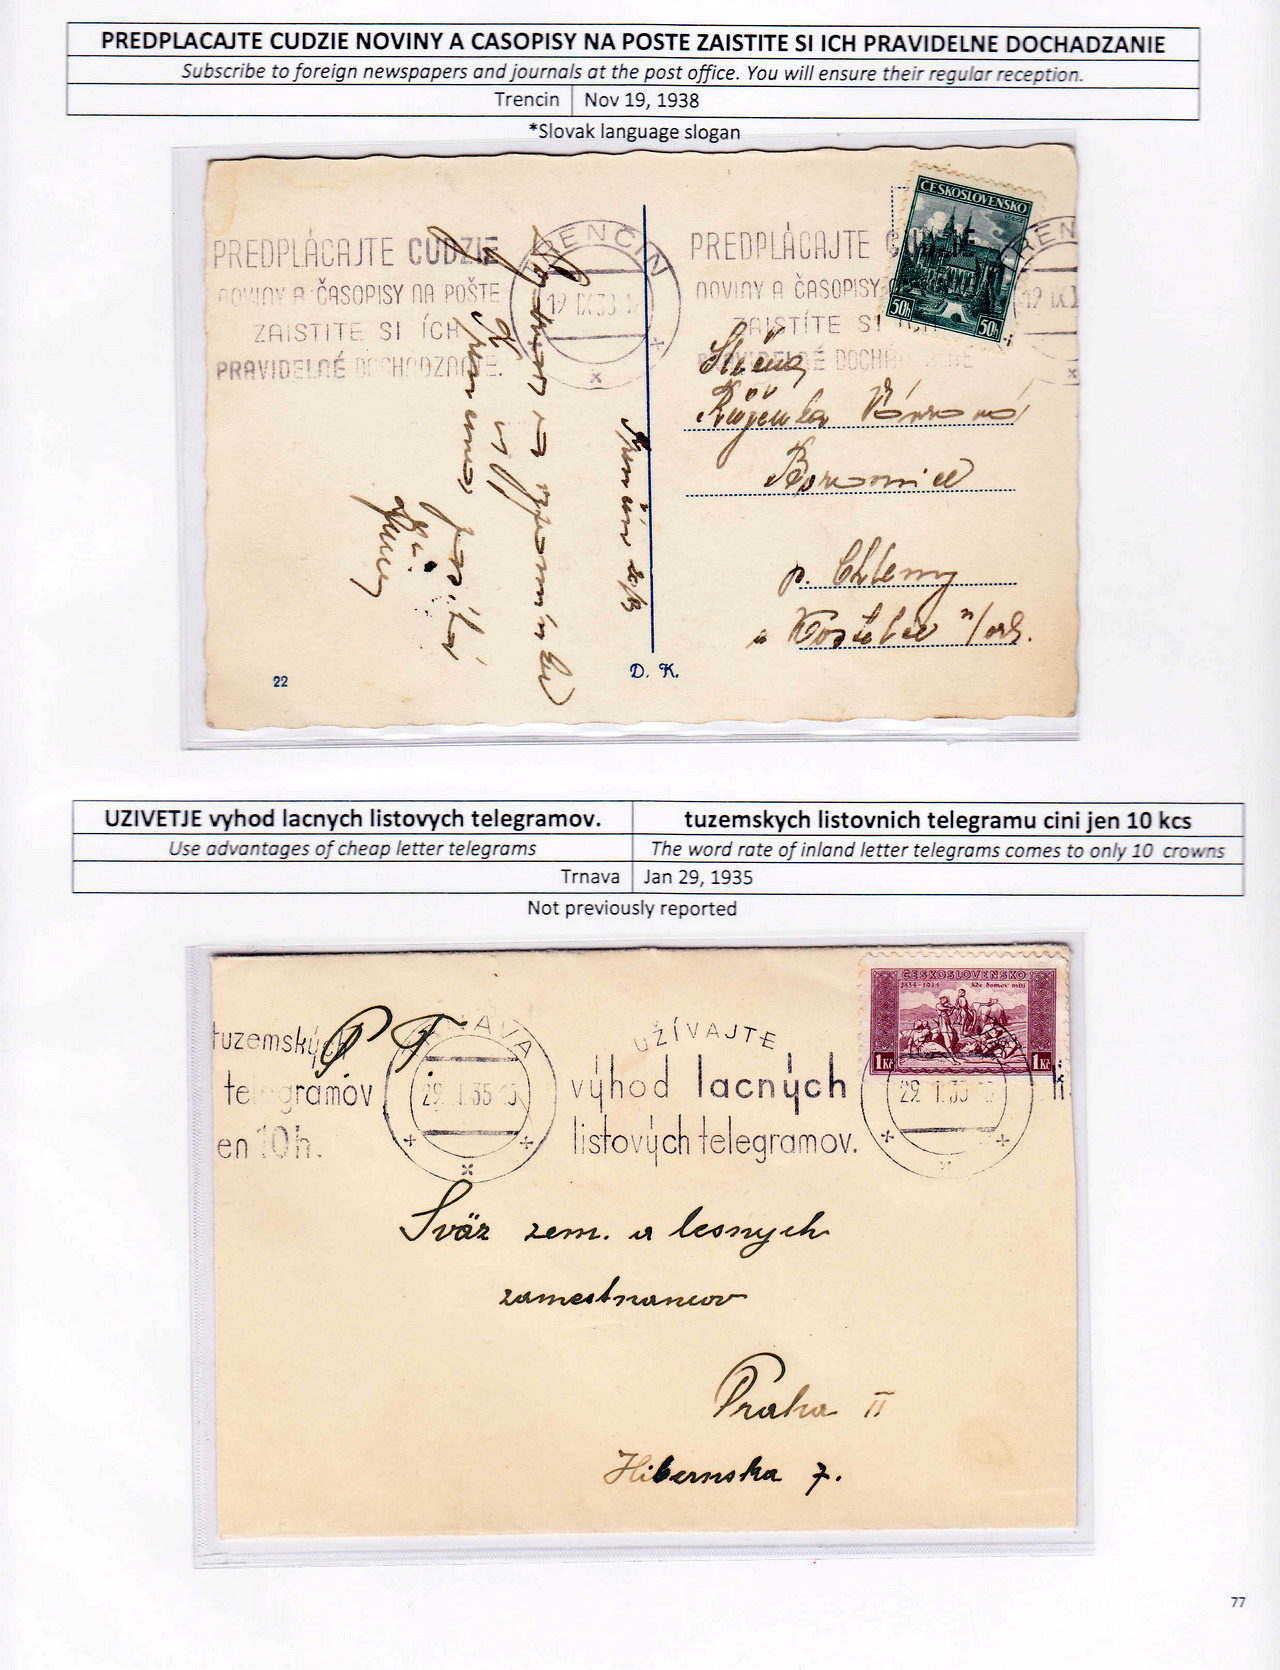 PREDPLACAJTE CUDZIE NOVINY A CASOPISY NA POSTE ZAISTITE SI ICH PRAVIDELNE DOCHADZANIE
Subscribe to foreign newspapers and journals at the post office. You will ensure their regular reception.
Trencin Nov 19, 1938
*Slovak language slogan
PREDPLÁCAJTE CUDZIE
NOVINY A ČASOPISY NA POŠTE
ZAISTITE SI ÍCH
PRAVIDELNÉ DOCHÁDZANIE.
TRENČÍN
19 IX 38
PREDPLÁCAJTE
NOVINY A ČASOPISY
ZAISTÍTE SI ICH
PRAVIDELNÉ
ČESKOSLOVENSKO
50h 50h
TREN
19 IX
Slečna
Růženka
p. Chleny
u Kostelec n/orl.
22
D. K.
UZIVETJE vyhod lacnych listovych telegramov. tuzemskych listovnich telegramu cini jen 10 kcs
Use advantages of cheap letter telegrams The word rate of inland letter telegrams comes to only 10 crowns
Trnava Jan 29, 1935
Not previously reported
ČESKOSLOVENSKO
1834-1934 Kde domov můj
1 Kč 1 Kč
tuzemských
telegramov
en 10h.
P. T.
RNAVA
29. I. 35
UŽÍVAJTE
výhod lacných
listových telegramov.
29. I. 35
li
Sväz zem. a lesnych
zamestnancov
Praha II
Hibernska 7.
77